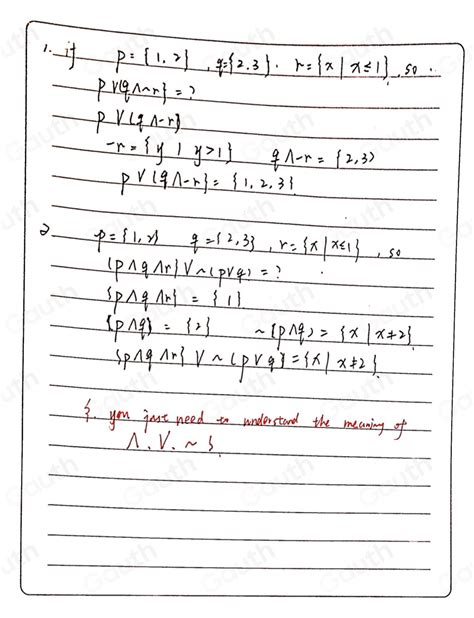 1. if p={1,2}, q={2,3}. r={x|x≤1}, so
p∨(q∧~r}=?
p∨(q∧-r)
-r={y|y>1} q∧-r={2,3)
p∨(q∧-r}={1,2,3}
2 p={1,2} q={2,3}, r={x|x≤1}, so
(p∧q∧r}∨~(p∨q)=?
{p∧q∧r}={1}
{p∧q}={2} ~(p∧q)={x|x≠2}
{p∧q∧r}∨~(p∨q}={x|x≠2}
{. you just need to understand the meaning of
∧.∨.~}.
Gauth